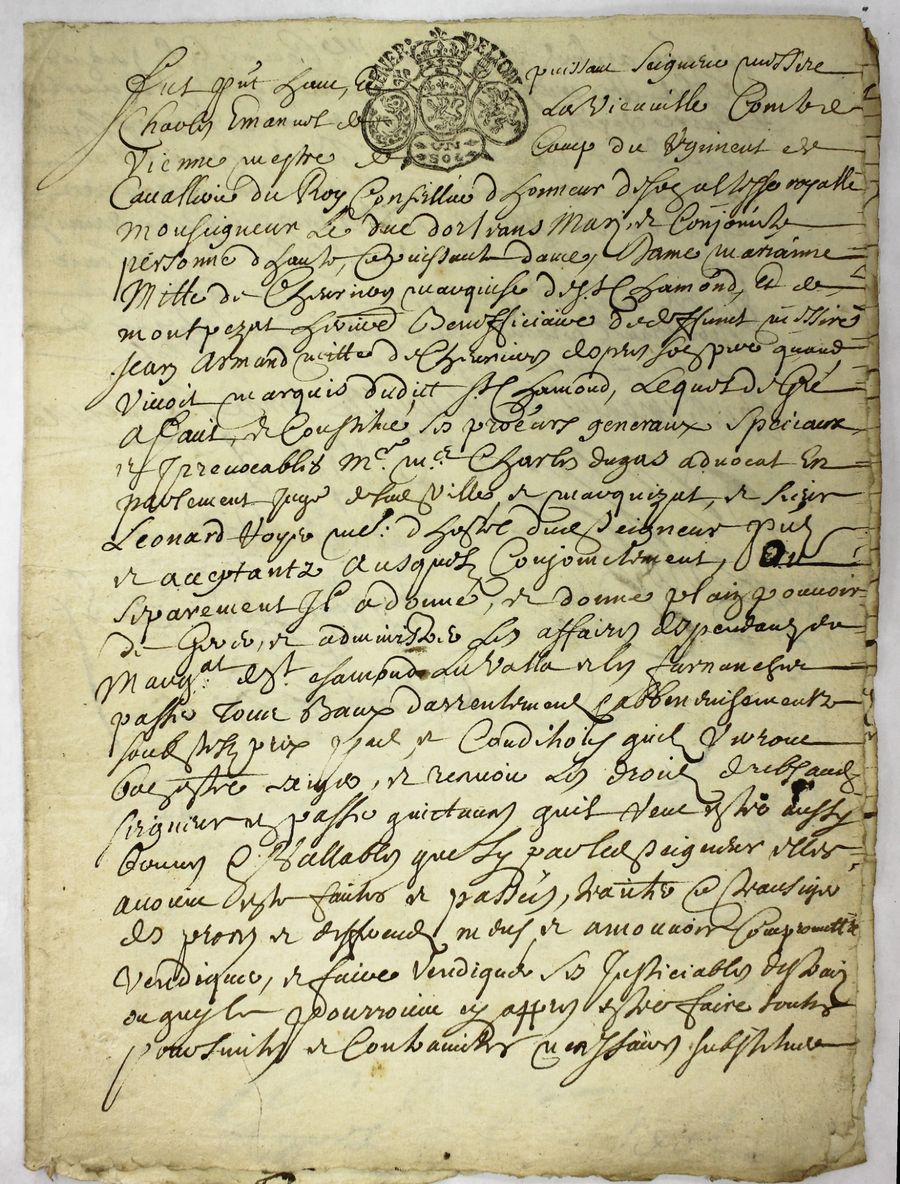 GENER. DE LYON
UN SOL
Fut pñt haut, Et puissant Seigneur messire
Charles Emanuel de La Vieuville Comte de
Vienne mestre de Camp du regiment de
Cavallerie du Roy Conseillier d'honneur de son altesse royalle
monseigneur Le duc dorleans Mary, et Conjointe
personne d haute, et puissante dame, Dame marianne
Mitte de Chevrieres marquise de St Chamond, Et de
montpezat heritiere Benefficiaire de deffunct messire
Jean Armand mitte de Chevrieres son pere quand
vivoit marquis dudict St Chamond, Lequel de gré
a faict, et Constitué, ses proēurs generaux speciaux
et Irrevocables Mre. Charles dugas advocat En
parlement Juge de lad ville et marquizat, et sieur
Leonard d'hostel dud Seigneur
et acceptantz ausquelz Conjoinctement, Ou
separement Il a donné, et donne plain pouvoir
de Gerer, et administrer Les affaires deppendans du
Marqat. de St. chamond La Valla
passer Tous Baux d'arrentement
soubz telz prix et Conditions quilz verront
bon estre et recevoir Les droictz dud
seigneur et passer quictances quil veut estre aussy
bonnes et Vallables que sy par led Seigneur elles
avoient esté faites et passées, traiter et transiger
des proces et differendz meus et a mouvoir Compromettre
Vendiquer, et faire Vendiquer ses Justiciables
ou quilz pourroient apres estre faire toutes
poursuites et Contraintes necessaires substituer